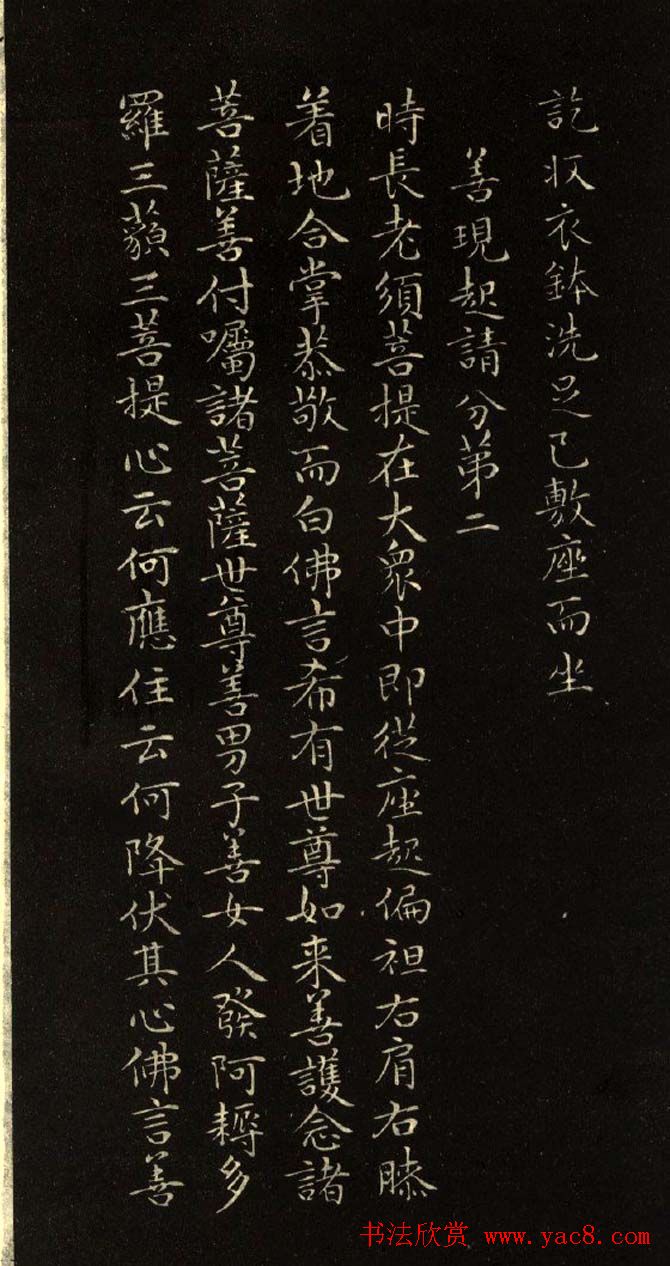 訖収衣鉢洗足已敷座而坐
善現起請分第二
時長老須菩提在大衆中即從座起偏袒右肩右膝
着地合掌恭敬而白佛言希有世尊如来善護念諸
菩薩善付囑諸菩薩世尊善男子善女人發阿耨多
羅三藐三菩提心云何應住云何降伏其心佛言善
书法欣赏 www.yac8.com